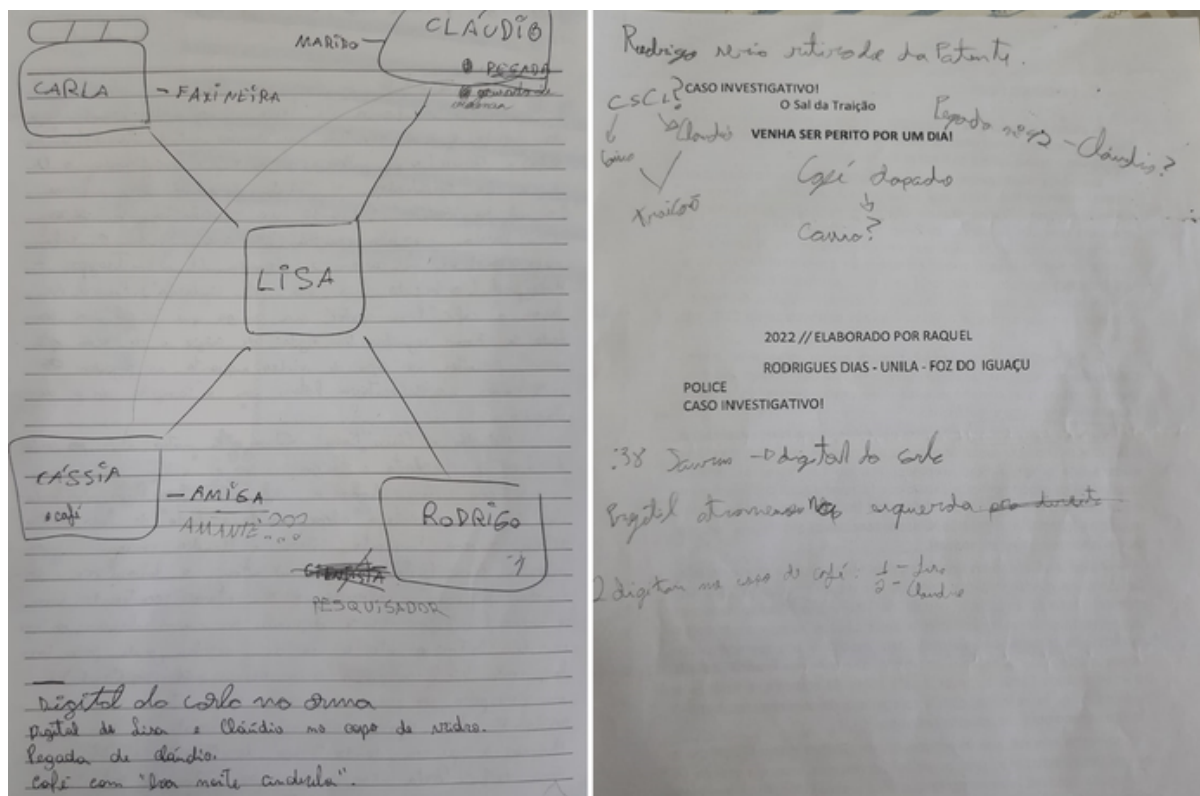 CARLA
- FAXINEIRA
MARIDO
CLÁUDIO
PEGADA
LISA
CÁSSIA
café
- AMIGA
AMANTE???
RODRIGO
PESQUISADOR
Digital do carlo na arma
Digital de Lisa e Cláudio no copo de vidro.
Pegada de cláudio.
Café com "boa noite cinderela".
Rodrigo seria da Patente.
CASO INVESTIGATIVO!
O Sal da Traição
CSCL?
Pegada nº42 - Cláudio?
Claudio
VENHA SER PERITO POR UM DIA!
Traição
Café dopado
2022 // ELABORADO POR RAQUEL
RODRIGUES DIAS - UNILA - FOZ DO IGUAÇU
POLICE
CASO INVESTIGATIVO!
:38 digital do carlo
Digital esquerda
2 digitais no copo de café: 1 - Lisa
2 - Claudio